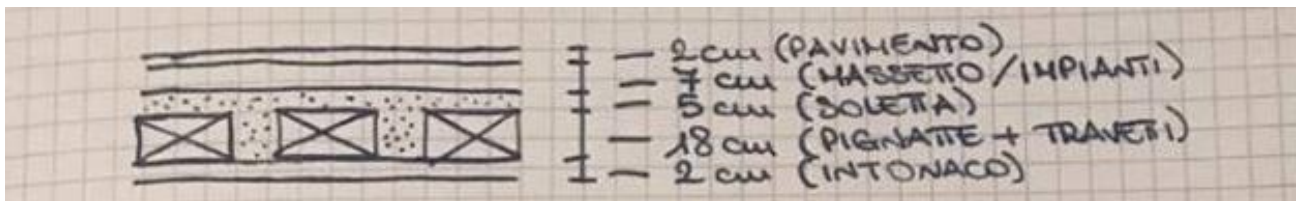 — 2 cm (PAVIMENTO)
— 7 cm (MASSETTO/IMPIANTI)
— 5 cm (SOLETTA)
— 18 cm (PIGNATTE + TRAVETTI)
— 2 cm (INTONACO)